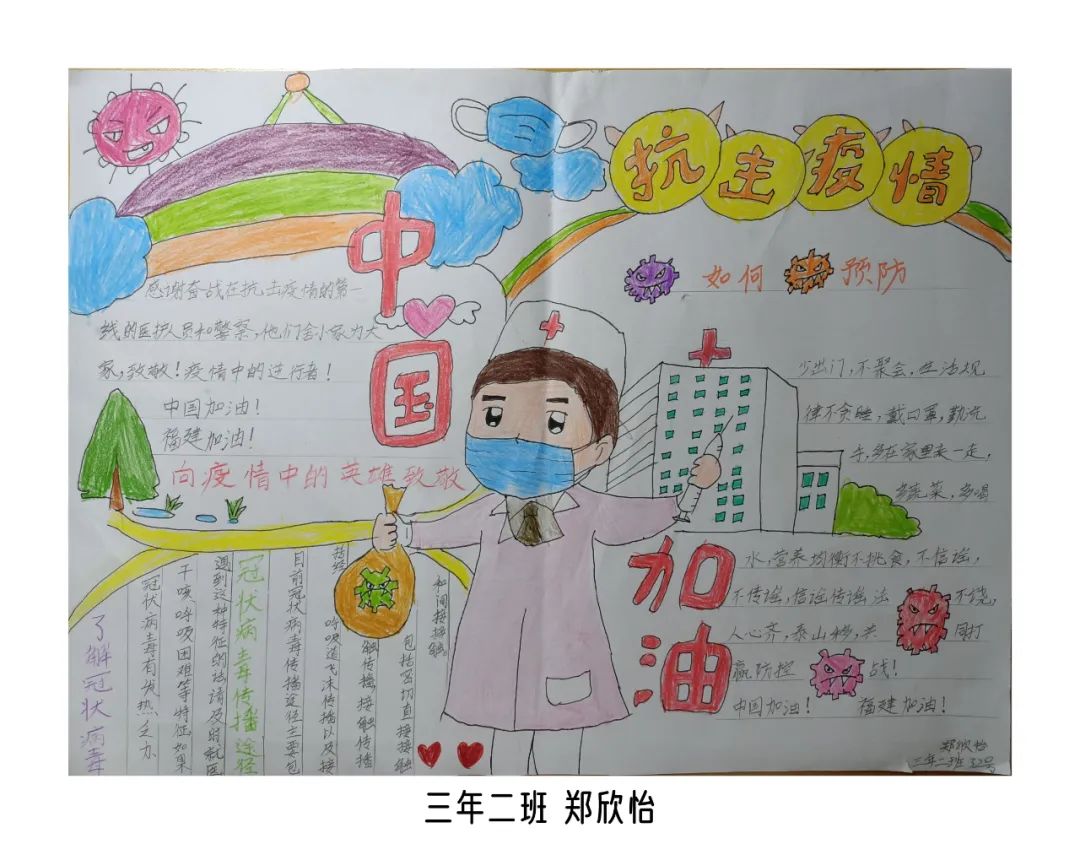 抗击疫情
中国
加油
感谢奋战在抗击疫情的第一
线的医护人员和警察,他们舍小家为大
家,致敬!疫情中的进行者!
中国加油!
福建加油!
向疫情中的英雄致敬
了解冠状病毒
冠状病毒有发热乏力
干咳呼吸困难等特征如果
遇到这种特征的话请及时就医
冠状病毒传播途径
目前冠状病毒传播途径主要包
括经呼吸道飞沫传播以及接
触传播,接触传播
包括密切直接接触
和间接接触。
如何预防
少出门,不聚会,生活规
律不贪睡,戴口罩,勤洗
手,多在家里来一走,
多蔬菜,多喝
水,营养均衡不挑食,不信谣,
不传谣,信谣传谣法不饶,
人心齐,泰山移,共同打
赢防控战!
中国加油!福建加油!
郑欣怡
三年二班 32号
三年二班 郑欣怡